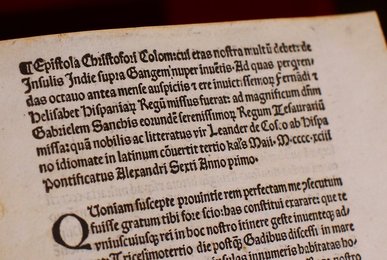 ¶Epistola Christofori Colom: cui etas nostra multū debet: de
Insulis Indie supra Gangem nuper inuētis. Ad quas perqren⸗
das octauo antea mense auspiciis ⁊ ere inuictissemoꝝ Fernādi ⁊
Helisabet Hispaniaꝝ Regū missus fuerat: ad magnificum dñm
Gabrielem Sanchis eorundē serenissimoꝝ Regum Tesaurariū
missa: quā nobilis ac litteratus vir Leander de Cosco ab Hispa
no idiomate in latinum cōuertit tertio kal's Maii. M.cccc.xciii
Pontificatus Alexandri Sexti Anno primo.
Quoniam suscepte prouintie rem perfectam me ↄsecutum
fuisse gratum tibi fore scio: has constitui exarare: que te
vniuscuiusqꝫ rei in hoc nostro itinere geste inuenteqꝫ ad⸗
Tricesimotertio die postqꝫ Gadibus discessi in mare
insulas innumeris habitatas ho⸗
nostro